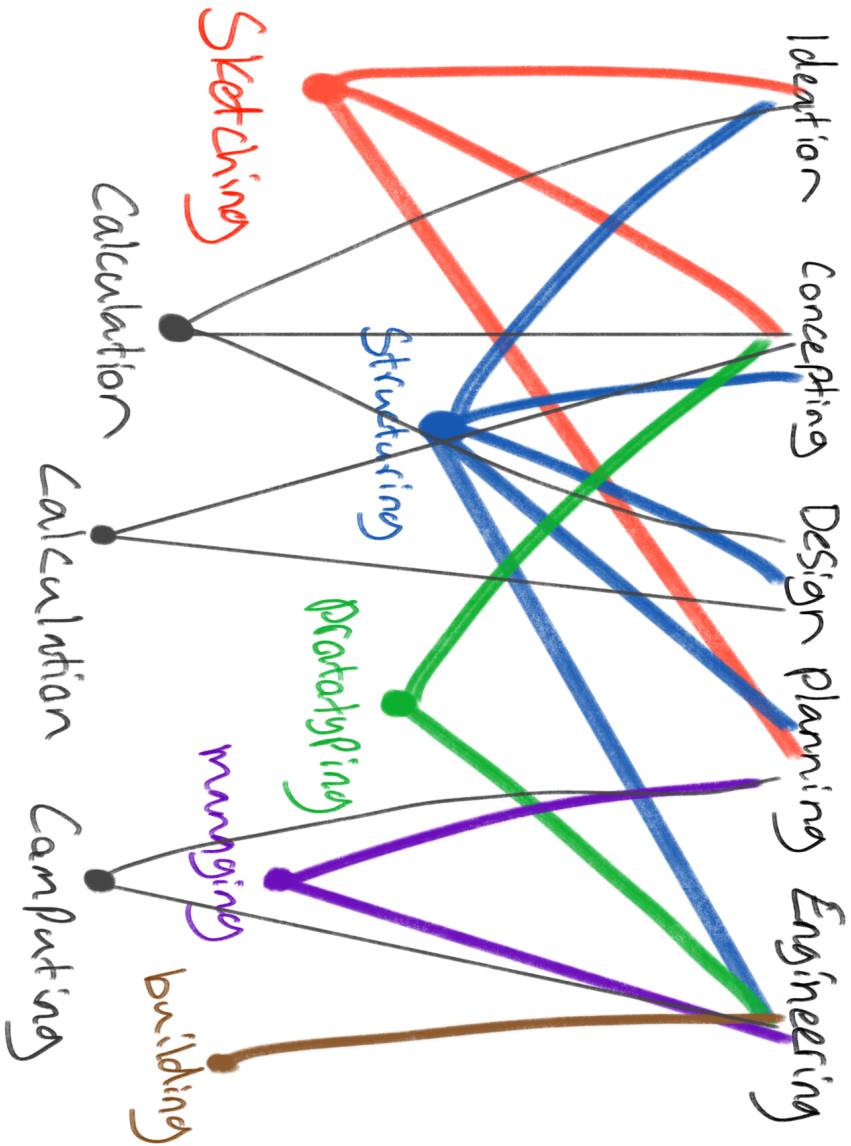 Ideation
Concepting
Design
Planning
Engineering
Sketching
Structuring
Prototyping
manging
building
Calculation
Calculation
Computing